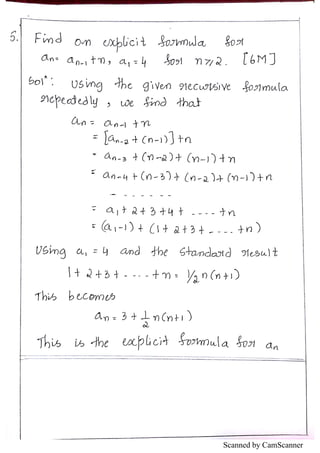 5. Find an explicit formula for
an = an-1 + n, a1 = 4 for n ≥ 2. [6M]
Sol°: Using the given recursive formula
repeatedly, we find that
an = an-1 + n
= [an-2 + (n-1)] + n
= an-3 + (n-2) + (n-1) + n
= an-4 + (n-3) + (n-2) + (n-1) + n
- - - - - - -
= a1 + 2 + 3 + 4 + ---- + n
= (a1-1) + (1 + 2 + 3 + ---- + n)
Using a1 = 4 and the standard result
1 + 2 + 3 + ---- + n = 1/2 n(n+1)
This becomes
an = 3 + 1/2 n(n+1)
This is the explicit formula for an
Scanned by CamScanner